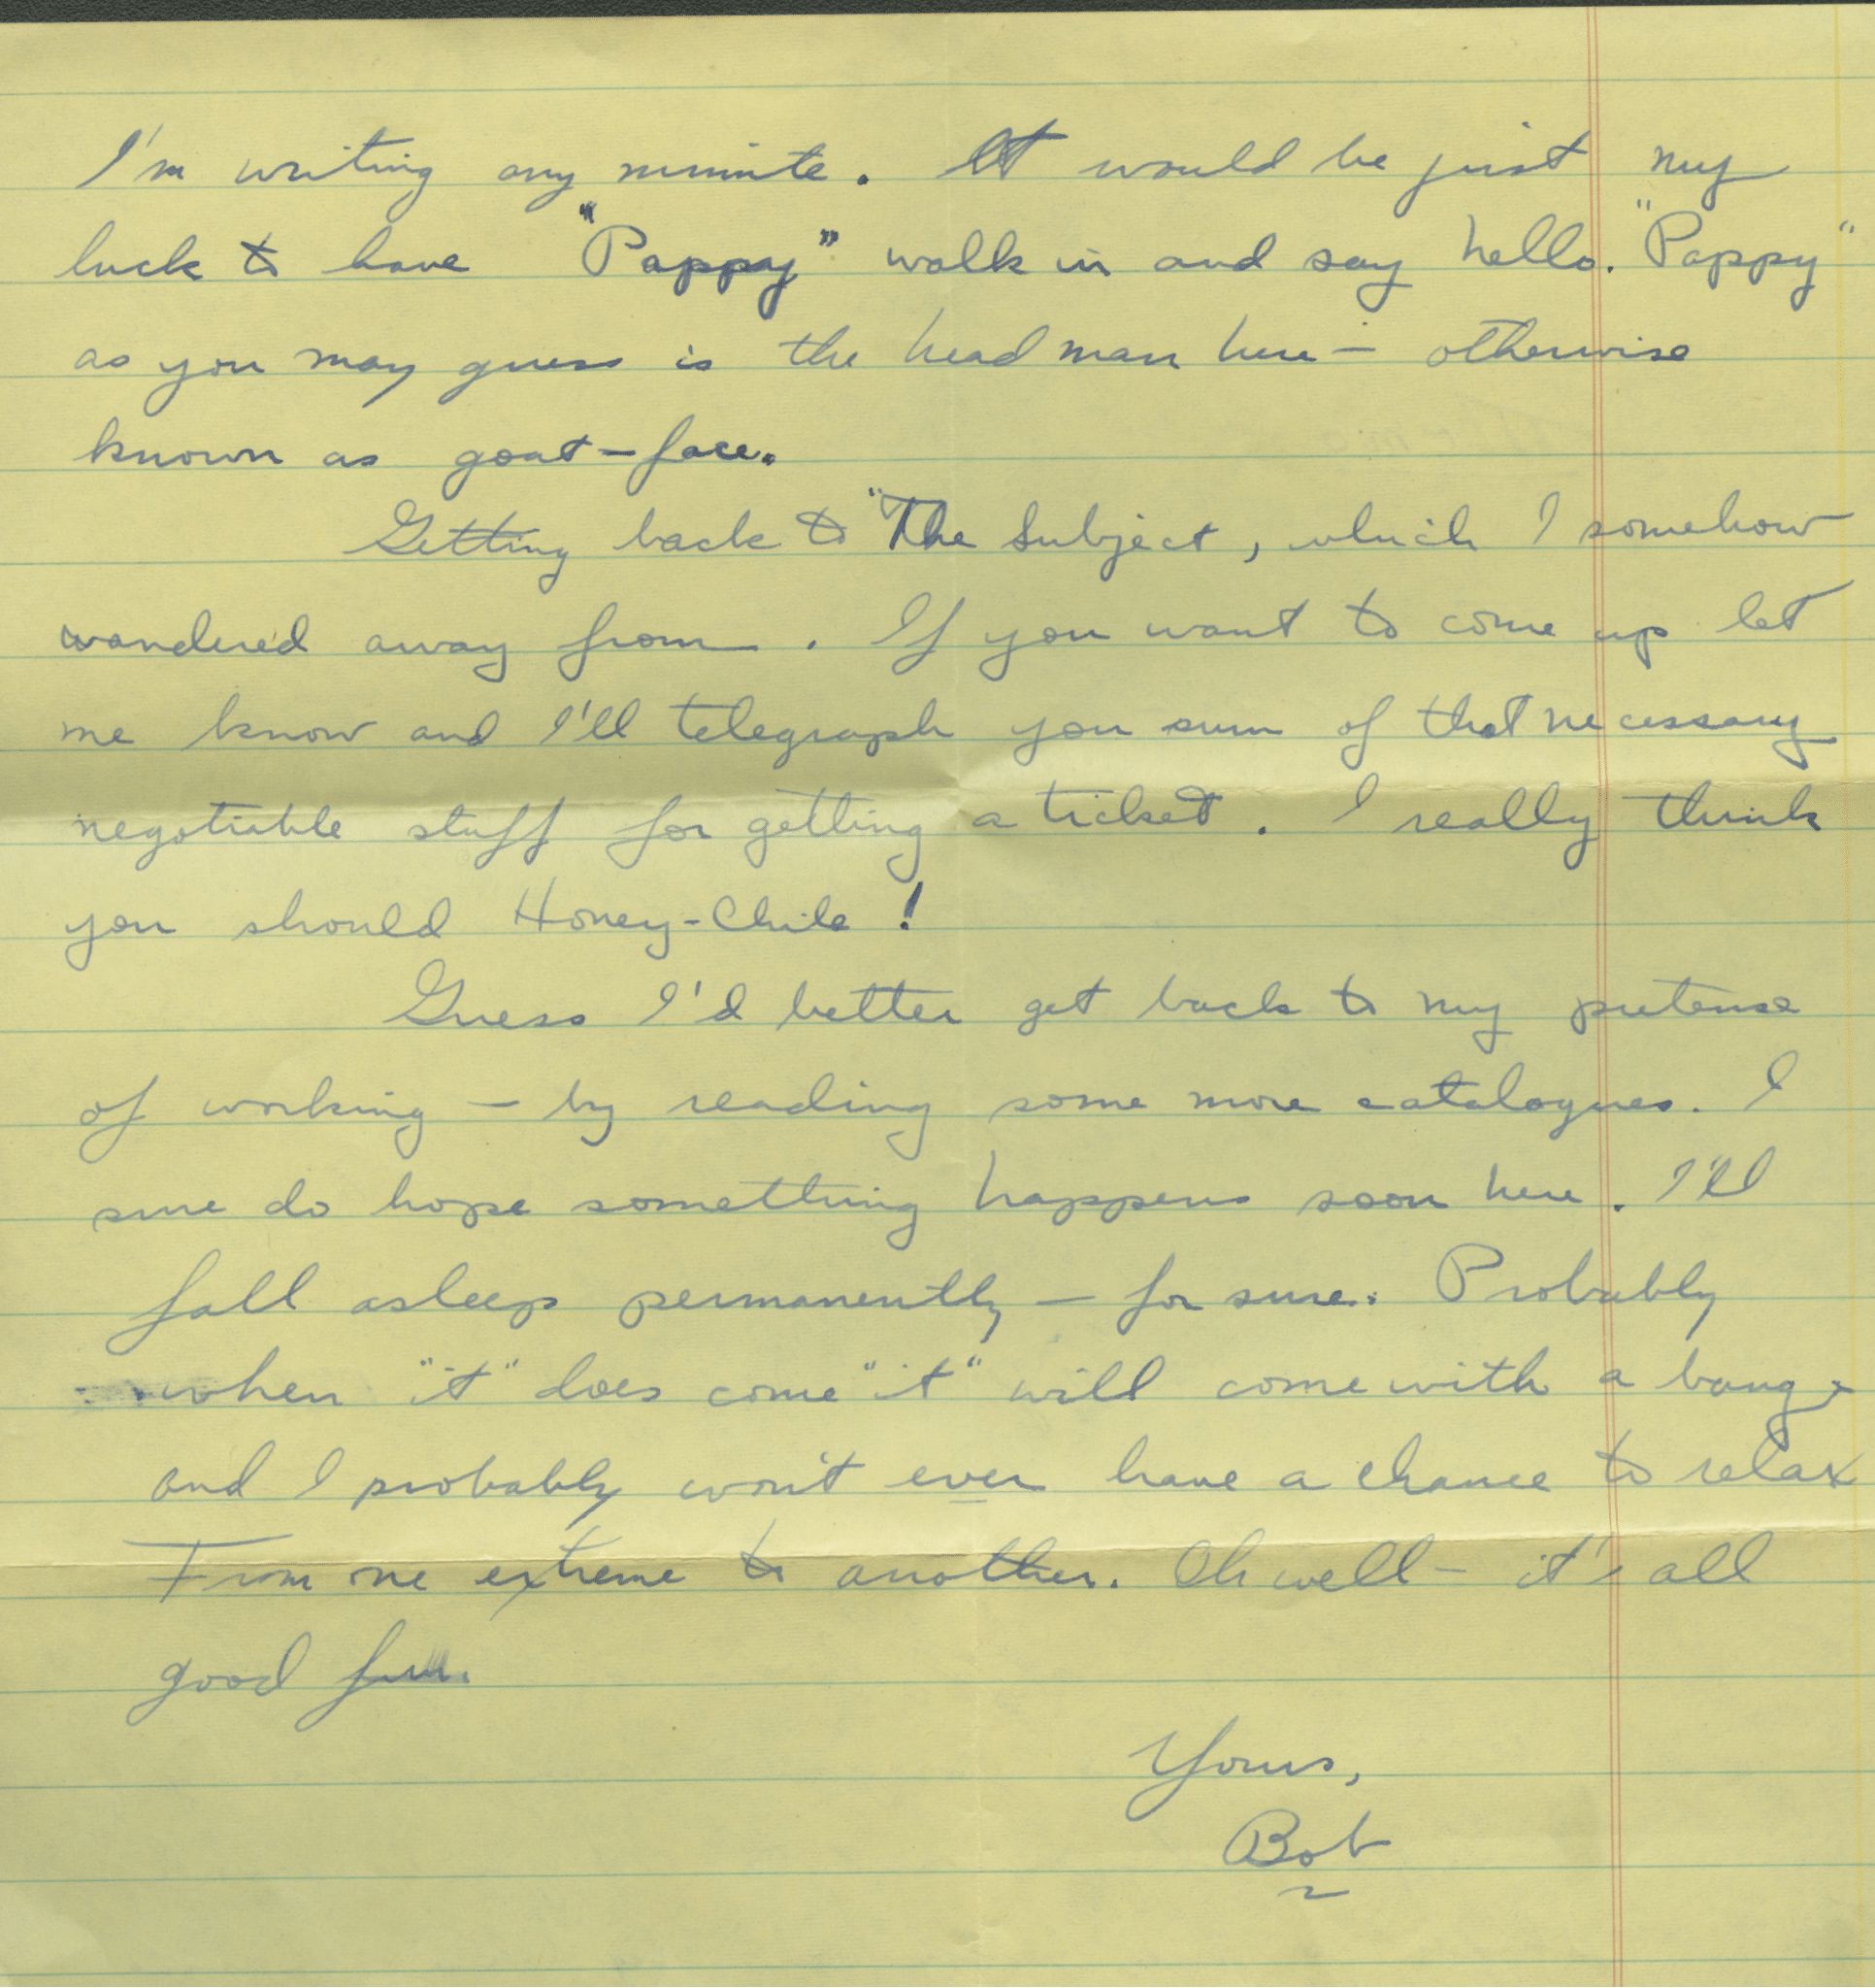 I'm writing any minute. It would be just my
luck to have "Pappy" walk in and say hello. "Pappy"
as you may guess is the head man here — otherwise
known as goat-face.
Getting back to "The Subject, which I somehow
wandered away from. If you want to come up let
me know and I'll telegraph you sum of that necessary
negotiable stuff for getting a ticket. I really think
you should Honey-Chile!
Guess I'd better get back to my pretense
of working — by reading some more catalogues. I
sure do hope something happens soon here. I'll
fall asleep permanently — for sure. Probably
when "it" does come "it" will come with a bang &
and I probably won't ever have a chance to relax
From one extreme to another. Oh well — it's all
good fun.
Yours,
Bob